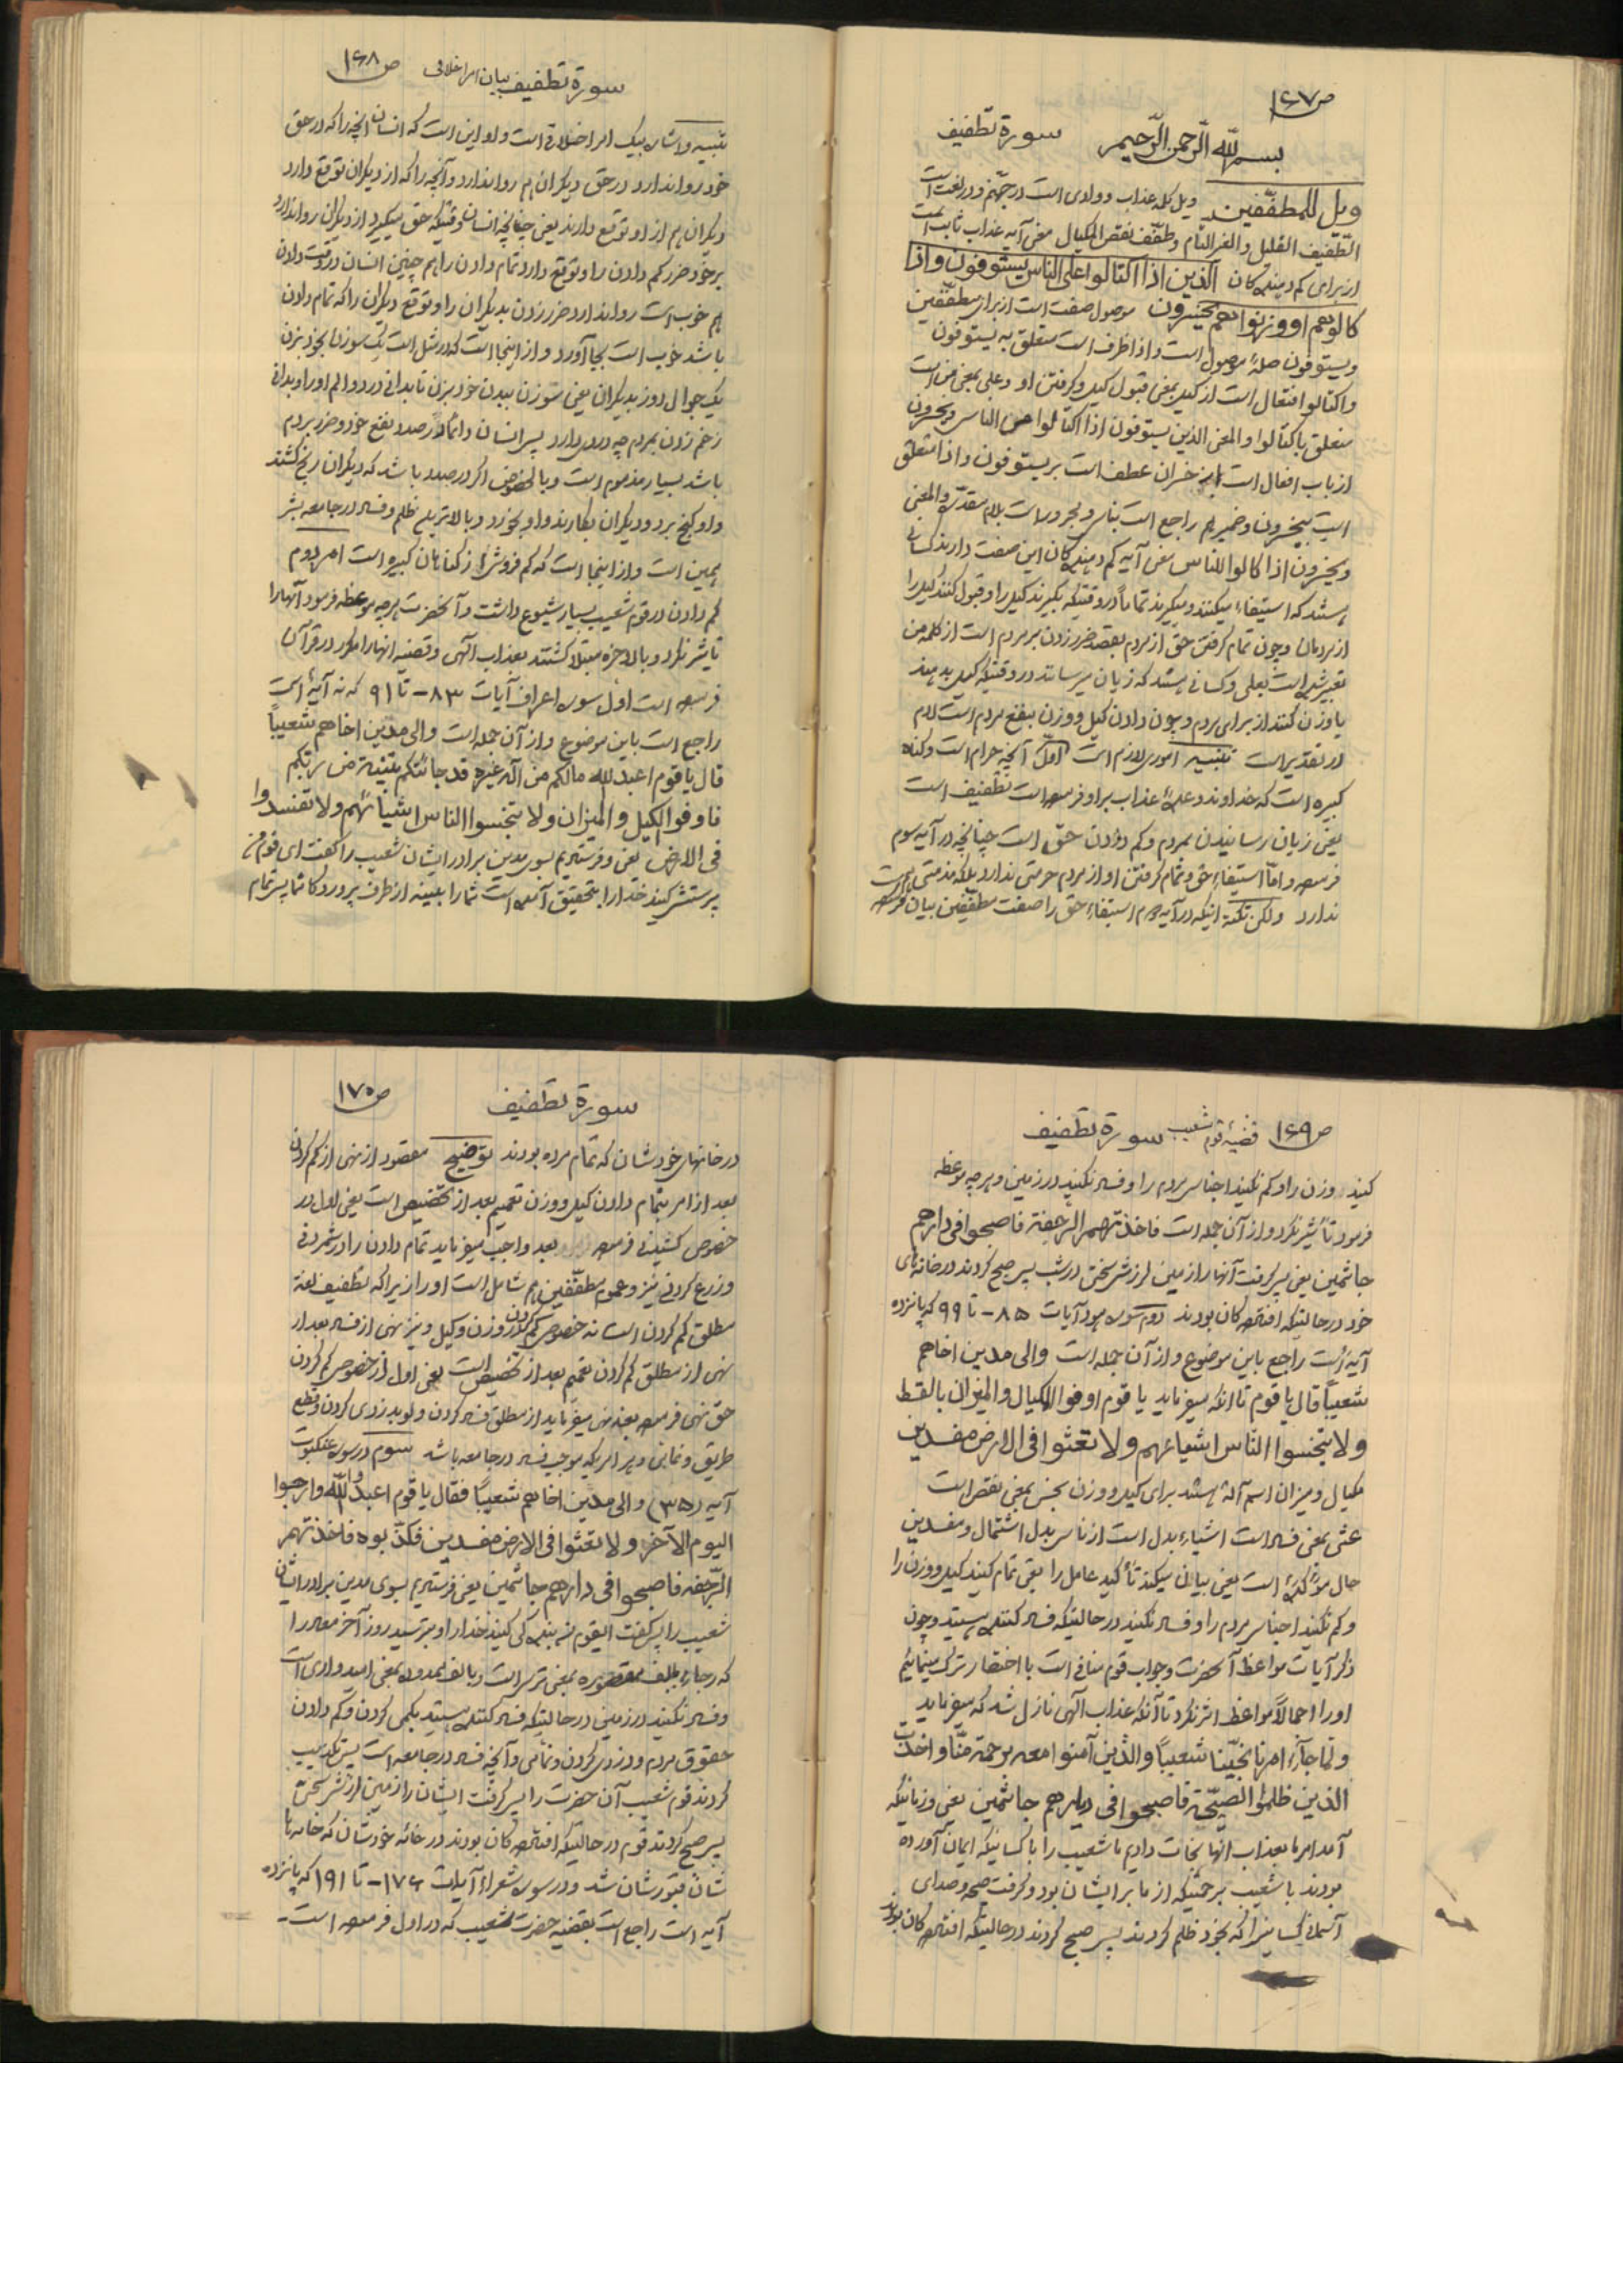 ص۱۶۷
بسم الله الرّحمن الرّحیم سورة تطفیف
ویل للمطفّفین ویل کله عذاب و وادی است در جهنّم و در لغت است
التّطفیف القلیل والغیر التام وطفّف نقص المکیال معنی آیه عذاب ثابت است
از برای کم دهنده کان الّذین اذا اکتالوا علی الناس یستوفون واذا
کالوهم او وزنوا هم یخسرون موصول صفت است از برای مطفّفین
ویستوفون صلهٔ موصول است و اذا ظرف است متعلق به یستوفون
واکتالوا افتعال است از کیل بمعنی قبول کیل و گرفتن او و علی بمعنی من است
متعلق باکتالوا والمعنی الذین یستوفون اذا اکتالوا من الناس ویخسرون
از باب افعال است از خسران عطف است بر یستوفون و اذا متعلق
است بیخسرون و ضمیر هم راجع است بناس و مجرور است بلام مقدّره والمعنی
ویخسرون اذا کالوا للناس معنی آیه کم دهنده کان این صفت دارند کسانی
هستند که استیفاء میکنند و میگیرند تماماً در وقتیکه بگیرند کیل را و قبول کنند کیل را
از مردمان و چون تمام گرفتن حق از مردم بقصد ضرر زدن بر مردم است از کلمه من
تعبیر شده است بعلی و کسانی هستند که زیان میرسانند در وقتیکه کیل بدهند
یا وزن کنند از برای مردم و چون دادن کیل و وزن بنفع مردم است لام
در تقدیر است تنبیه اموری لازم است اوّل آنچه حرام است و گناه
کبیره است که خداوند وعدهٔ عذاب بر او فرموده است تطفیف است
یعنی زیان رسانیدن بمردم و کم دادن حق است چنانچه در آیه سوم
فرموده و امّا استیفاء حق و تمام گرفتن او از مردم حرمتی ندارد بلکه مذمتی هم
ندارد ولکن نکتهٔ اینکه در آیه دوم استیفاء حق را صفت مطفّفین بیان فرموده
ص۱۶۸
سورة تطفیف بیان امر اخلاقی
تنبیه و اشاره بیک امر اخلاقی است و او این است که انسان آنچه را که در حق
خود روا ندارد در حق دیگران هم روا ندارد و آنچه را که از دیگران توقع دارد
دیگران هم از او توقع دارند یعنی چنانچه انسان وقتیکه حق میگیرد از دیگران روا ندارد
بر خود ضرر کم دادن را و توقع دارد تمام دادن را هم چنین انسان در وقت دادن
هم خوب است روا ندارد ضرر زدن بدیگران را و توقع دیگران را که تمام دادن
باشد خوب است بجا آورد و از اینجا است که در مثل است یک سوزن بخود بزن
یک جوال دوز بدیگران یعنی سوزن ببدن خود بزن تا بدانی درد و الم او را و بدانی
زخم زدن بمردم چه دردی دارد پس انسان دائماً در صدد نفع خود و ضرر مردم
باشد بسیار مذموم است و بالخصوص اگر در صدد باشد که دیگران رنج کشند
و او گنج برد و دیگران بکارند و او بخورد و بالاترین ظلم و فساد در جامعه بشر
همین است و از اینجا است که کم فروشی از گناهان کبیره است امر دوم
کم دادن در قوم شعیب بسیار شیوع داشت و آنحضرت هر چه موعظه فرمود آنها را
تاثیر نکرد و بالاخره مبتلا گشتند بعذاب آلهی و قضیه انها را مکرر در قرآن
فرموده است اول سوره اعراف آیات ۸۳- تا ۹۱ که نه آیهٔ است
راجع است باین موضوع و از آن جمله است والی مدین اخاهم شعیباً
قال یا قوم اعبد الله مالکم من آله غیره قد جائتکم بیّنة من ربّکم
فاوفوا الکیل والمیزان ولا تبخسوا الناس اشیائهم ولا تفسدوا
فی الارض یعنی و فرستادیم بسوی مدین برادر ایشان شعیب را گفت ای قوم من
پرستش کنید خدا را بتحقیق آمده است شما را بینه از طرف پروردگار شما پس تمام
ص۱۶۹ قضیهٔ قوم شعیب سورة تطفیف
کنید وزن را و کم نکنید اجناس مردم را و فساد نکنید در زمین و هر چه موعظه
فرمود تأثیر نکرد و از آن جمله است فاخذتهم الرّجفة فاصبحوا فی دارهم
جاثمین یعنی پس گرفت آنها را زمین لرزش سختی در شب پس صبح کردند در خانه های
خود در حالتیکه افتاده کان بودند دوم سوره هود آیات ۸۵- تا ۹۹ که پانزده
آیه است راجع باین موضوع و از آن جمله است والی مدین اخاهم
شعیباً قال یا قوم تا آنکه میفرماید یا قوم اوفوا المکیال والمیزان بالقسط
ولا تبخسوا الناس اشیاءهم ولا تعثوا فی الارض مفسدین
مکیال و میزان اسم آلة هستند برای کیل و وزن بخس بمعنی نقص است
عثی بمعنی فساد است اشیاء بدل است از ناس بدل اشتمال و مفسدین
حال مؤکدهٔ است یعنی بیان میکند تأکید عامل را یعنی تمام کنید کیل و وزن را
و کم نکنید اجناس مردم را و فساد نکنید در حالتیکه فساد کننده هستید و چون
ذکر آیات مواعظ آنحضرت و جواب قوم منافی است با اختصار ترک مینمائیم
او را اجمالاً مواعظ اثر نکرد تا آنکه عذاب آلهی نازل شد که میفرماید
ولمّا جآء امرنا نجّینا شعیباً والذین آمنوا معه برحمة منّا واخذت
الذین ظلموا الصیحة فاصبحوا فی دیارهم جاثمین یعنی و زمانیکه
آمد امر ما بعذاب انها نجات دادیم ما شعیب را با کسانیکه ایمان آورده
بودند با شعیب برحمتیکه از ما بر ایشان بود و گرفت صیحه و صدای
آسمانی کسانیرا که بخود ظلم کردند پس صبح کردند در حالتیکه افتاده کان بودند
سورة تطفیف ص۱۷۰
در خانهای خودشان که تمام مرده بودند توضیح مقصود از نهی از کم کردن
بعد از امر بتمام دادن کیل و وزن تعمیم بعد از تخصیص است یعنی اول در
خصوص کشیدنی فرموده بعد واجب میفرماید تمام دادن را در شمردنی
و زرع کردنی نیز و عموم مطفّفین هم شامل است او را زیرا که تطفیف لغة
مطلق کم کردن است نه خصوص کم کردن از وزن و کیل و نیز نهی از فساد بعد از
نهی از مطلق کم کردن تعمیم بعد از تخصیص است یعنی اول از خصوص کم کردن
حق نهی فرموده بعد نهی میفرماید از مطلق فساد کردن ولو بدزدی کردن و قطع
طریق و نمامی و هر امریکه موجب فساد در جامعه باشد سوم در سوره عنکبوت
آیه (۳۵) والی مدین اخاهم شعیباً فقال یا قوم اعبدُوا الله وارجوا
الیوم الآخر ولا تعثوا فی الارض مفسدین فکذّبوه فاخذتهم
الرّجفه فاصبحوا فی دارهم جاثمین یعنی فرستادیم بسوی مدین برادر ایشان
شعیب را پس گفت ایقوم من بندگی کنید خدا را و بترسید روز آخر معاد را
که رجاء بالف مقصوره بمعنی ترس است و بالف ممدوده بمعنی امیدواری است
و فساد نکنید در زمین در حالتیکه فساد کننده هستید بکمی کردن و کم دادن
حقوق مردم و دزدی کردن و نمامی و آنچه فساد در جامعه است پس تکذیب
کردند قوم شعیب آن حضرت را پس گرفت ایشان را زمین لرزش سختی
پس صبح کردند قوم در حالتیکه افتاده کان بودند در خانه خودشان که خانه ها
شان قبورشان شد و در سوره شعراء آیات ۱۷۶- تا ۱۹۱ که پانزده
آیه است راجع است بقضیه حضرت شعیب که در اول فرموده است-